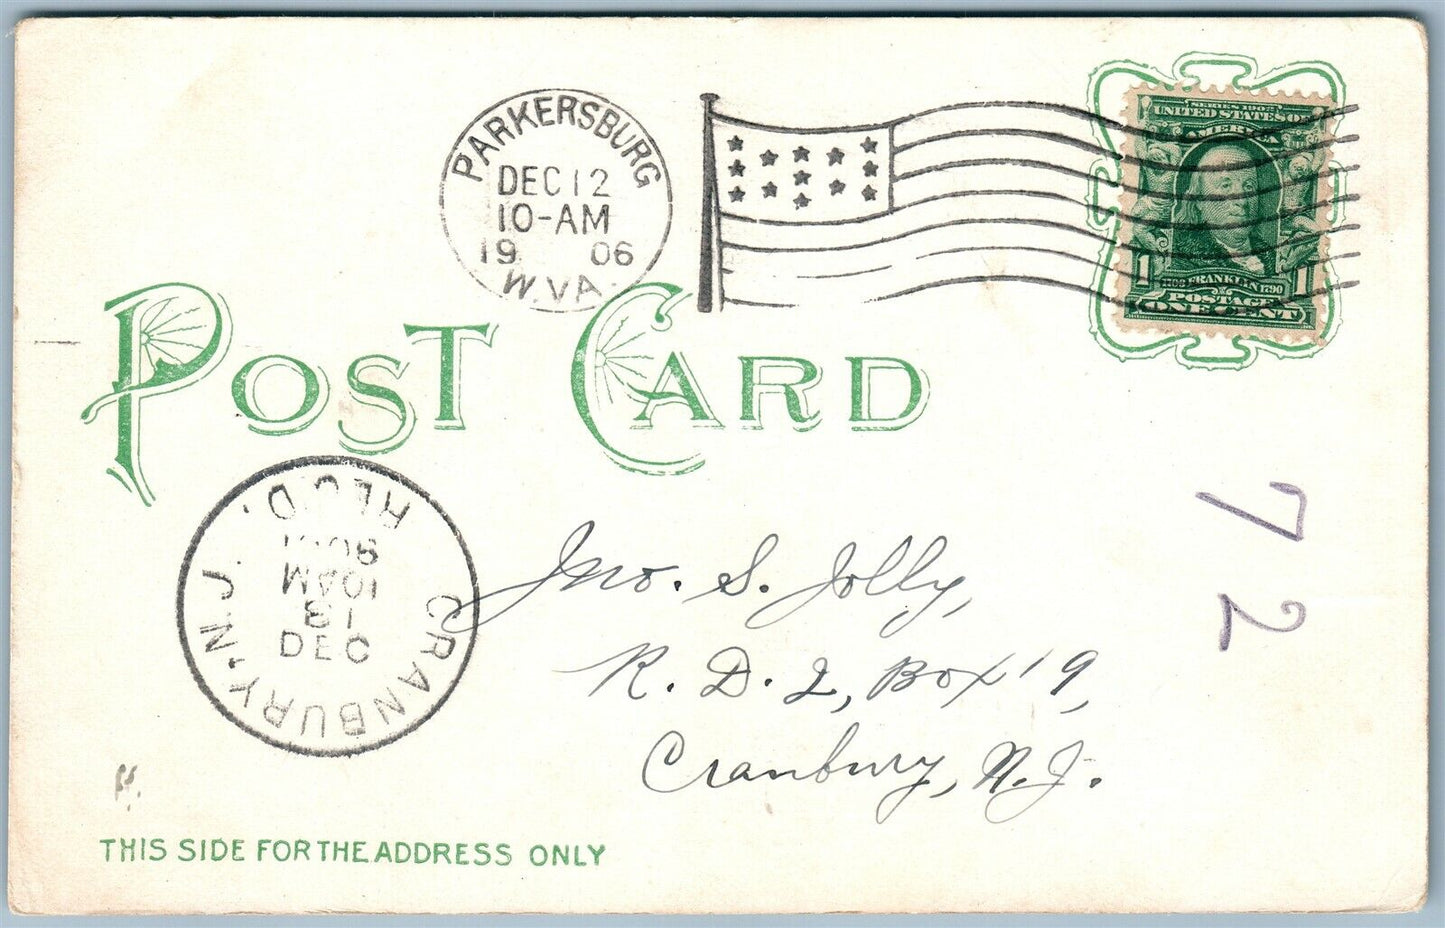 PARKERSBURG
DEC 12
10-AM
19 06
W. VA.
SERIES 1902
UNITED STATES OF
AMERICA
1 FRANKLIN 1790 1
POSTAGE
ONE CENT
POST CARD
CRANBURY, N.J.
DEC
13
10AM
1906
REC'D.
72
Jno. S. Jolly,
R. D. 2, Box 19,
Cranbury, N. J.
THIS SIDE FOR THE ADDRESS ONLY